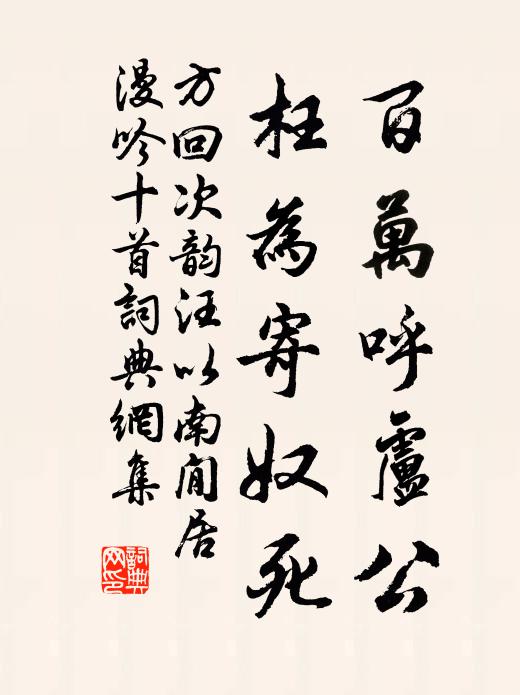 百萬呼盧公
枉為寄奴死
方回次韵汪以南閒居
漫吟十首詞典網集
詞典
网印